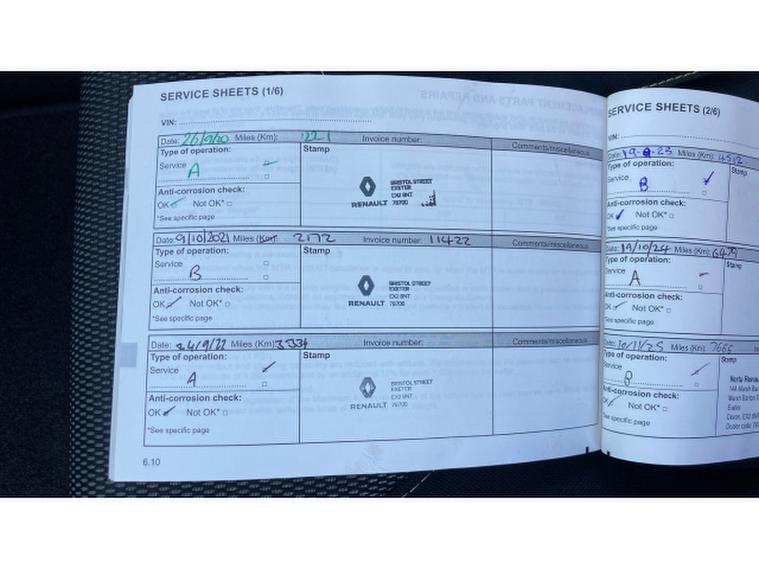 SERVICE SHEETS (1/6)
VIN:
Date: 26/9/20 Miles (Km): 1221 Invoice number: Comments/miscellaneous
Type of operation: Stamp
Service
A
BRISTOL STREET
EXETER
EX2 8NT
RENAULT 76700
Anti-corrosion check:
OK Not OK*
*See specific page
Date: 9/10/2021 Miles (Km): 2172 Invoice number: 11422 Comments/miscellaneous
Type of operation: Stamp
Service
B
BRISTOL STREET
EXETER
EX2 8NT
RENAULT 76700
Anti-corrosion check:
OK Not OK*
*See specific page
Date: 24/9/22 Miles (Km): 3334 Invoice number: Comments/miscellaneous
Type of operation: Stamp
Service
A
BRISTOL STREET
EXETER
EX2 8NT
RENAULT 76700
Anti-corrosion check:
OK Not OK*
*See specific page
6.10
SERVICE SHEETS (2/6)
VIN:
Date: 19-9-23 Miles (Km): 4512
Type of operation: Stamp
Service
B
Anti-corrosion check:
OK Not OK*
*See specific page
Date: 19/10/24 Miles (Km):
Type of operation: Stamp
Service
A
Anti-corrosion check:
OK Not OK*
*See specific page
Date: 10/11/25 Miles (Km): 7666
Type of operation: Stamp
Service
B
Anti-corrosion check:
OK Not OK*
*See specific page
Vertu Rena
Marsh Barton
Exeter
Devon, EX2
Dealer code: